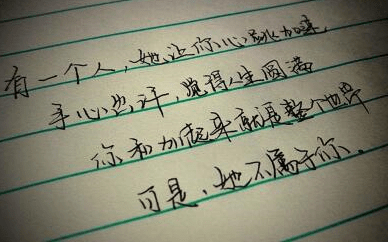 有一个人，她让你心跳加速，
手心出汗，觉得人生圆满
你和她加起来就是整个世界
可是，她不属于你.